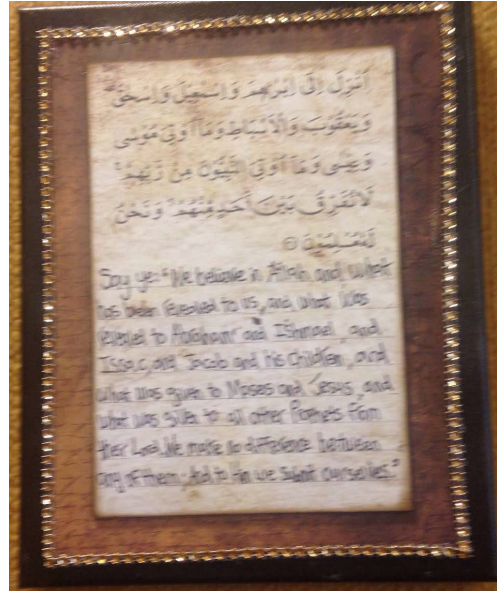 أُنْزِلَ إِلَى إِبْرٰهٖمَ وَإِسْمٰعِيلَ وَإِسْحٰقَ
وَيَعْقُوبَ وَالْأَسْبَاطِ وَمَا أُوتِيَ مُوسٰى
وَعِيسٰى وَمَا أُوتِيَ النَّبِيُّونَ مِنْ رَبِّهِمْ
لَا نُفَرِّقُ بَيْنَ أَحَدٍ مِنْهُمْ وَنَحْنُ
Say ye: "We believe in Allah and what
has been revealed to us, and what was
revealed to Abraham and Ishmael, and
Issac, and Jacob and his children, and
what was given to Moses and Jesus, and
what was given to all other Prophets from
their Lord. We make no difference between
any of them: And to Him we submit ourselves."